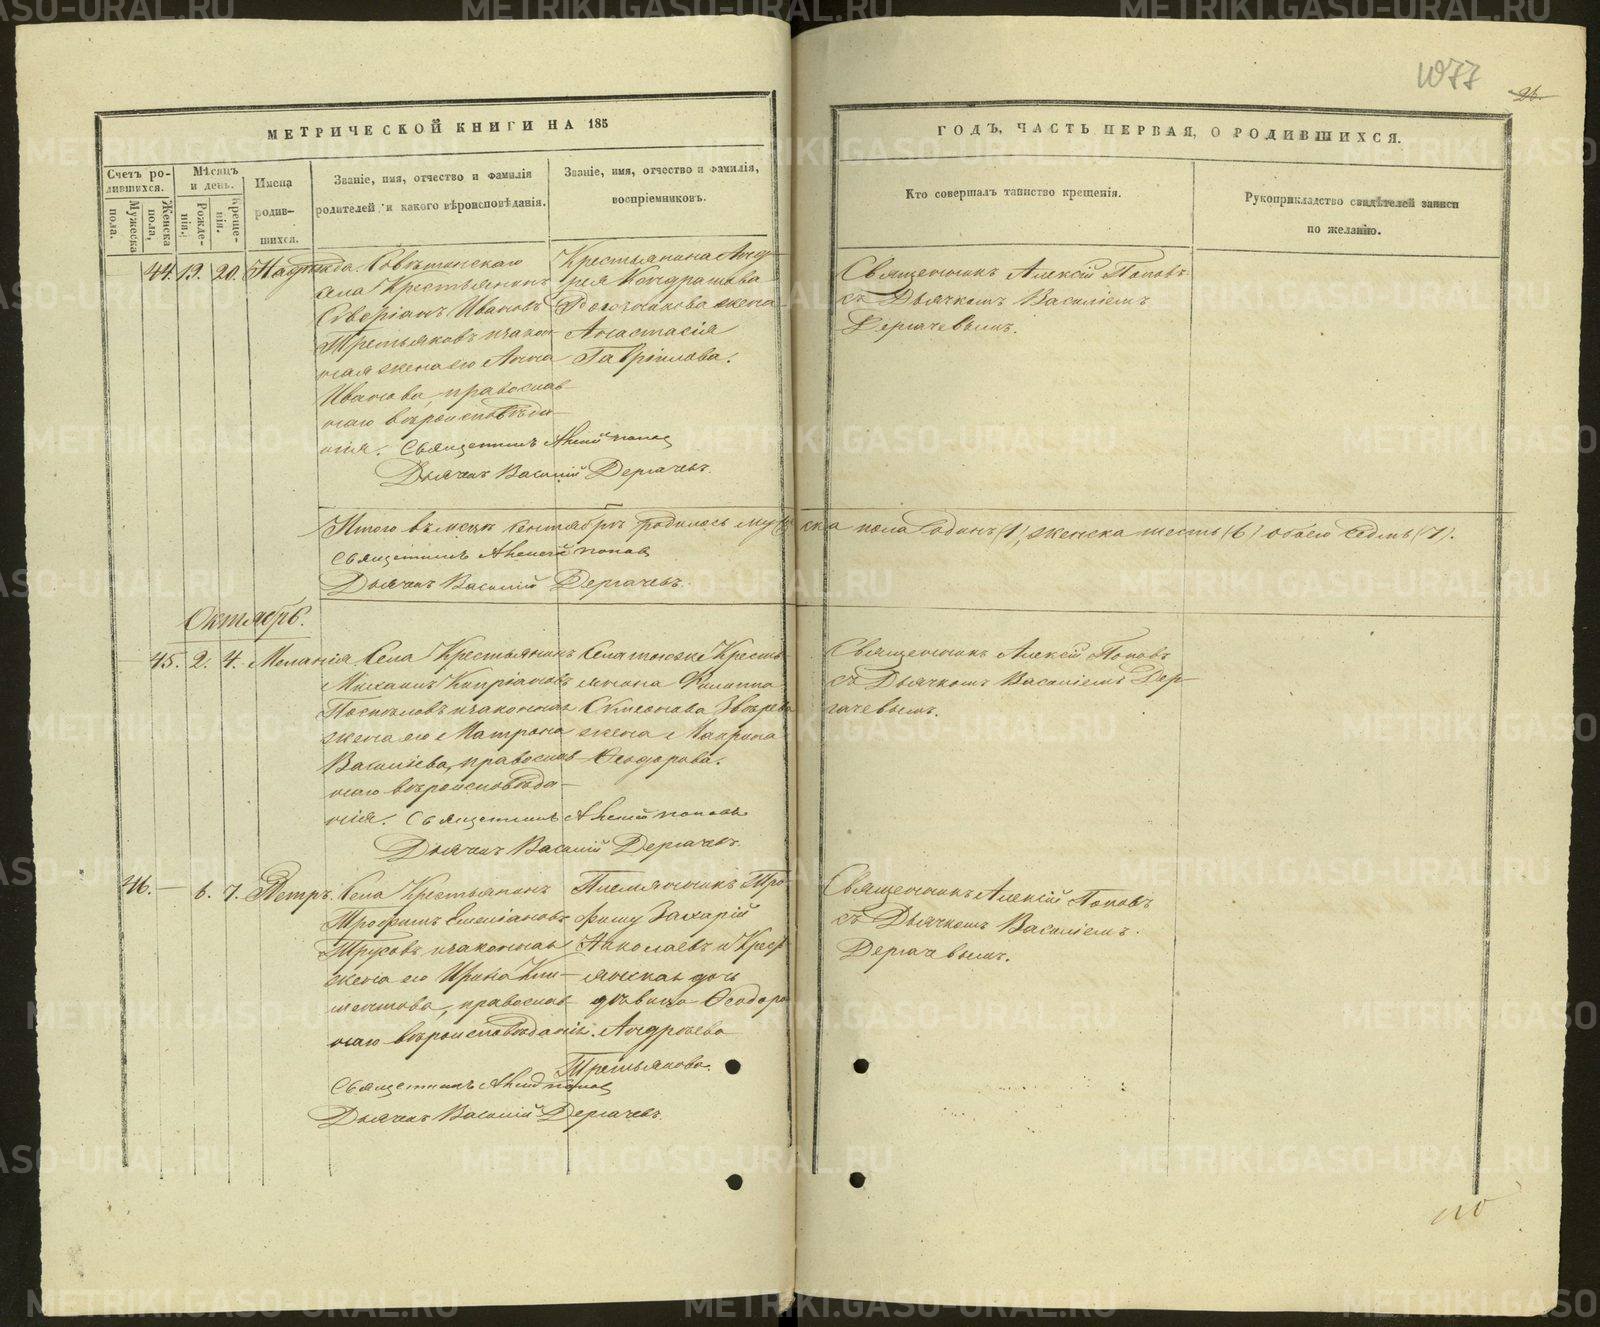 1077
26.
МЕТРИЧЕСКОЙ КНИГИ НА 185
ГОДЪ, ЧАСТЬ ПЕРВАЯ, О РОДИВШИХСЯ.
Счетъ ро-
дившихся.
Мужеска
пола.
Женска
пола,
Мѣсяцъ
и день.
Рожде-
нія.
Креще-
нія.
Имена
родив-
шихся.
Званіе, имя, отчество и фамилія
родителей, и какого вѣроисповѣданія.
Званіе, имя, отчество и фамилія,
воспріемниковъ.
Кто совершалъ таинство крещенія.
Рукоприкладство свидѣтелей записи
по желанію.
44. 19. 20. Надежда
села Крестьянинъ
Северіанъ Ивановъ
Третьяковъ и закон-
ная жена его Анна
Иванова, православ-
наго вѣроисповѣда-
нія. Священникъ Алексій Попов
Дьячекъ Василій Дергачевъ.
Крестьянина Анд-
рея Кондрашова
жена
Анастасія
Гавріилова.
Священникъ Алексій Поповъ
съ Дьячкомъ Василіемъ
Дергачевымъ.
Итого въ месяцѣ сентябрѣ родилось мужеска пола одинъ (1), женска шесть (6) обоего седмь (7).
Священникъ Алексей Попов
Дьячекъ Василій Дергачевъ.
Октябрь.
45. 2. 4. Меланія
Села Крестьянинъ
Михаилъ Кипріановъ
Поспѣловъ и законная
жена его Матрона
Василіева, православ-
наго вѣроисповѣда-
нія. Священникъ Алексій Поповъ
Дьячекъ Василій Дергачевъ.
Села тогоже Кресть-
янина Филиппа
Симеонова Звѣрева
жена Маврина
Ѳеодорова.
Священникъ Алексій Поповъ
съ Дьячкомъ Василіемъ Дер-
гачевымъ.
46. 6. 7. Петръ.
Села Крестьянинъ
Трофимъ Емеліановъ
Трусовъ и законная
жена его Ирина Кли-
ментова, православ-
наго вѣроисповѣданія.
Священникъ Алексій Попов
Дьячекъ Василій Дергачевъ.
Племянникъ Тро-
фиму Захарій
Николаевъ и Крест-
янская дочь
дѣвица Ѳеодора
Андреева
Третьякова.
Священникъ Алексій Поповъ
съ Дьячкомъ Василіемъ
Дергачевымъ.
METRIKI.GASO-URAL.RU